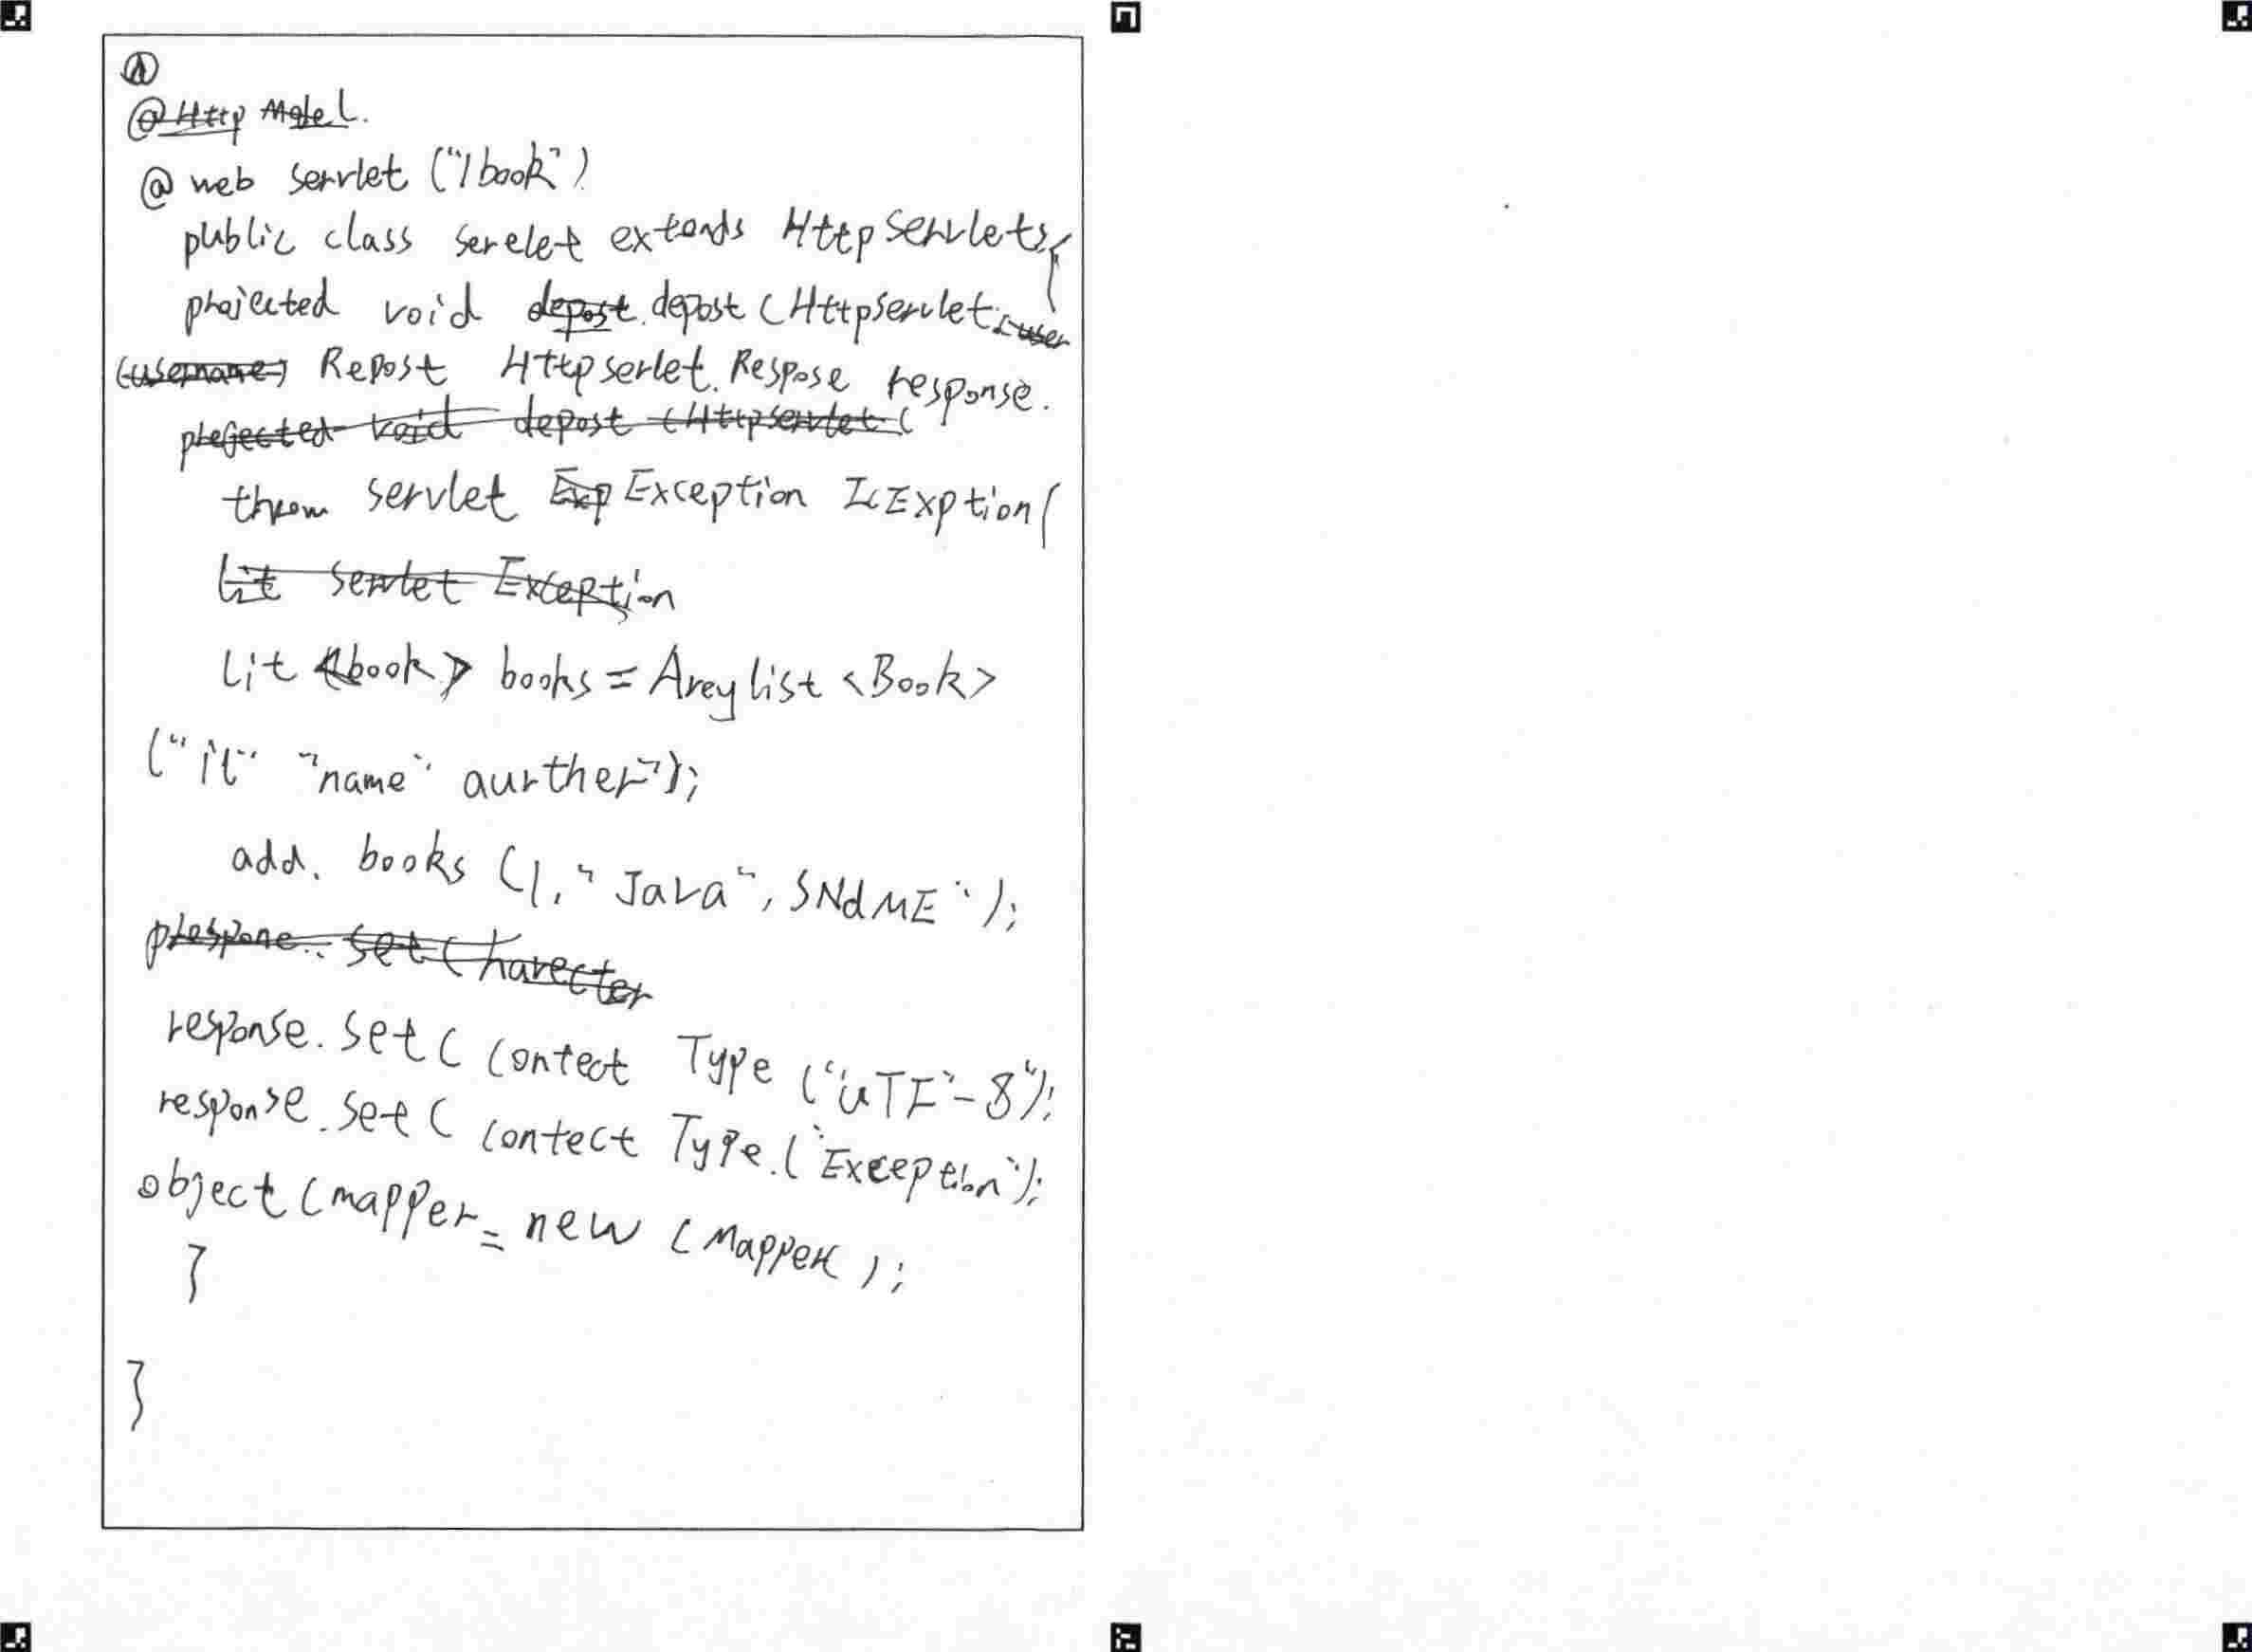 ①
@Http Model.
@ web servlet ("/book")
public class serelet extends Http Servlets{
projected void depost. depost (Httpservlet. user
(username) Repost Httpserlet. Respose response.
prejected void depost (Httpservlet (
throw servlet Exp Exception IcExption{
Lit servlet Exception
Lit <book> books = Areylist <Book>
("it" "name" aurther");
add. books (1, "Java", SNdME");
prespone.. set (harecter
response. set ( contect Type ("UTF"-8");
response. set ( contect Type. ("Exception");
object (mapper = new (Mapper );
}
}